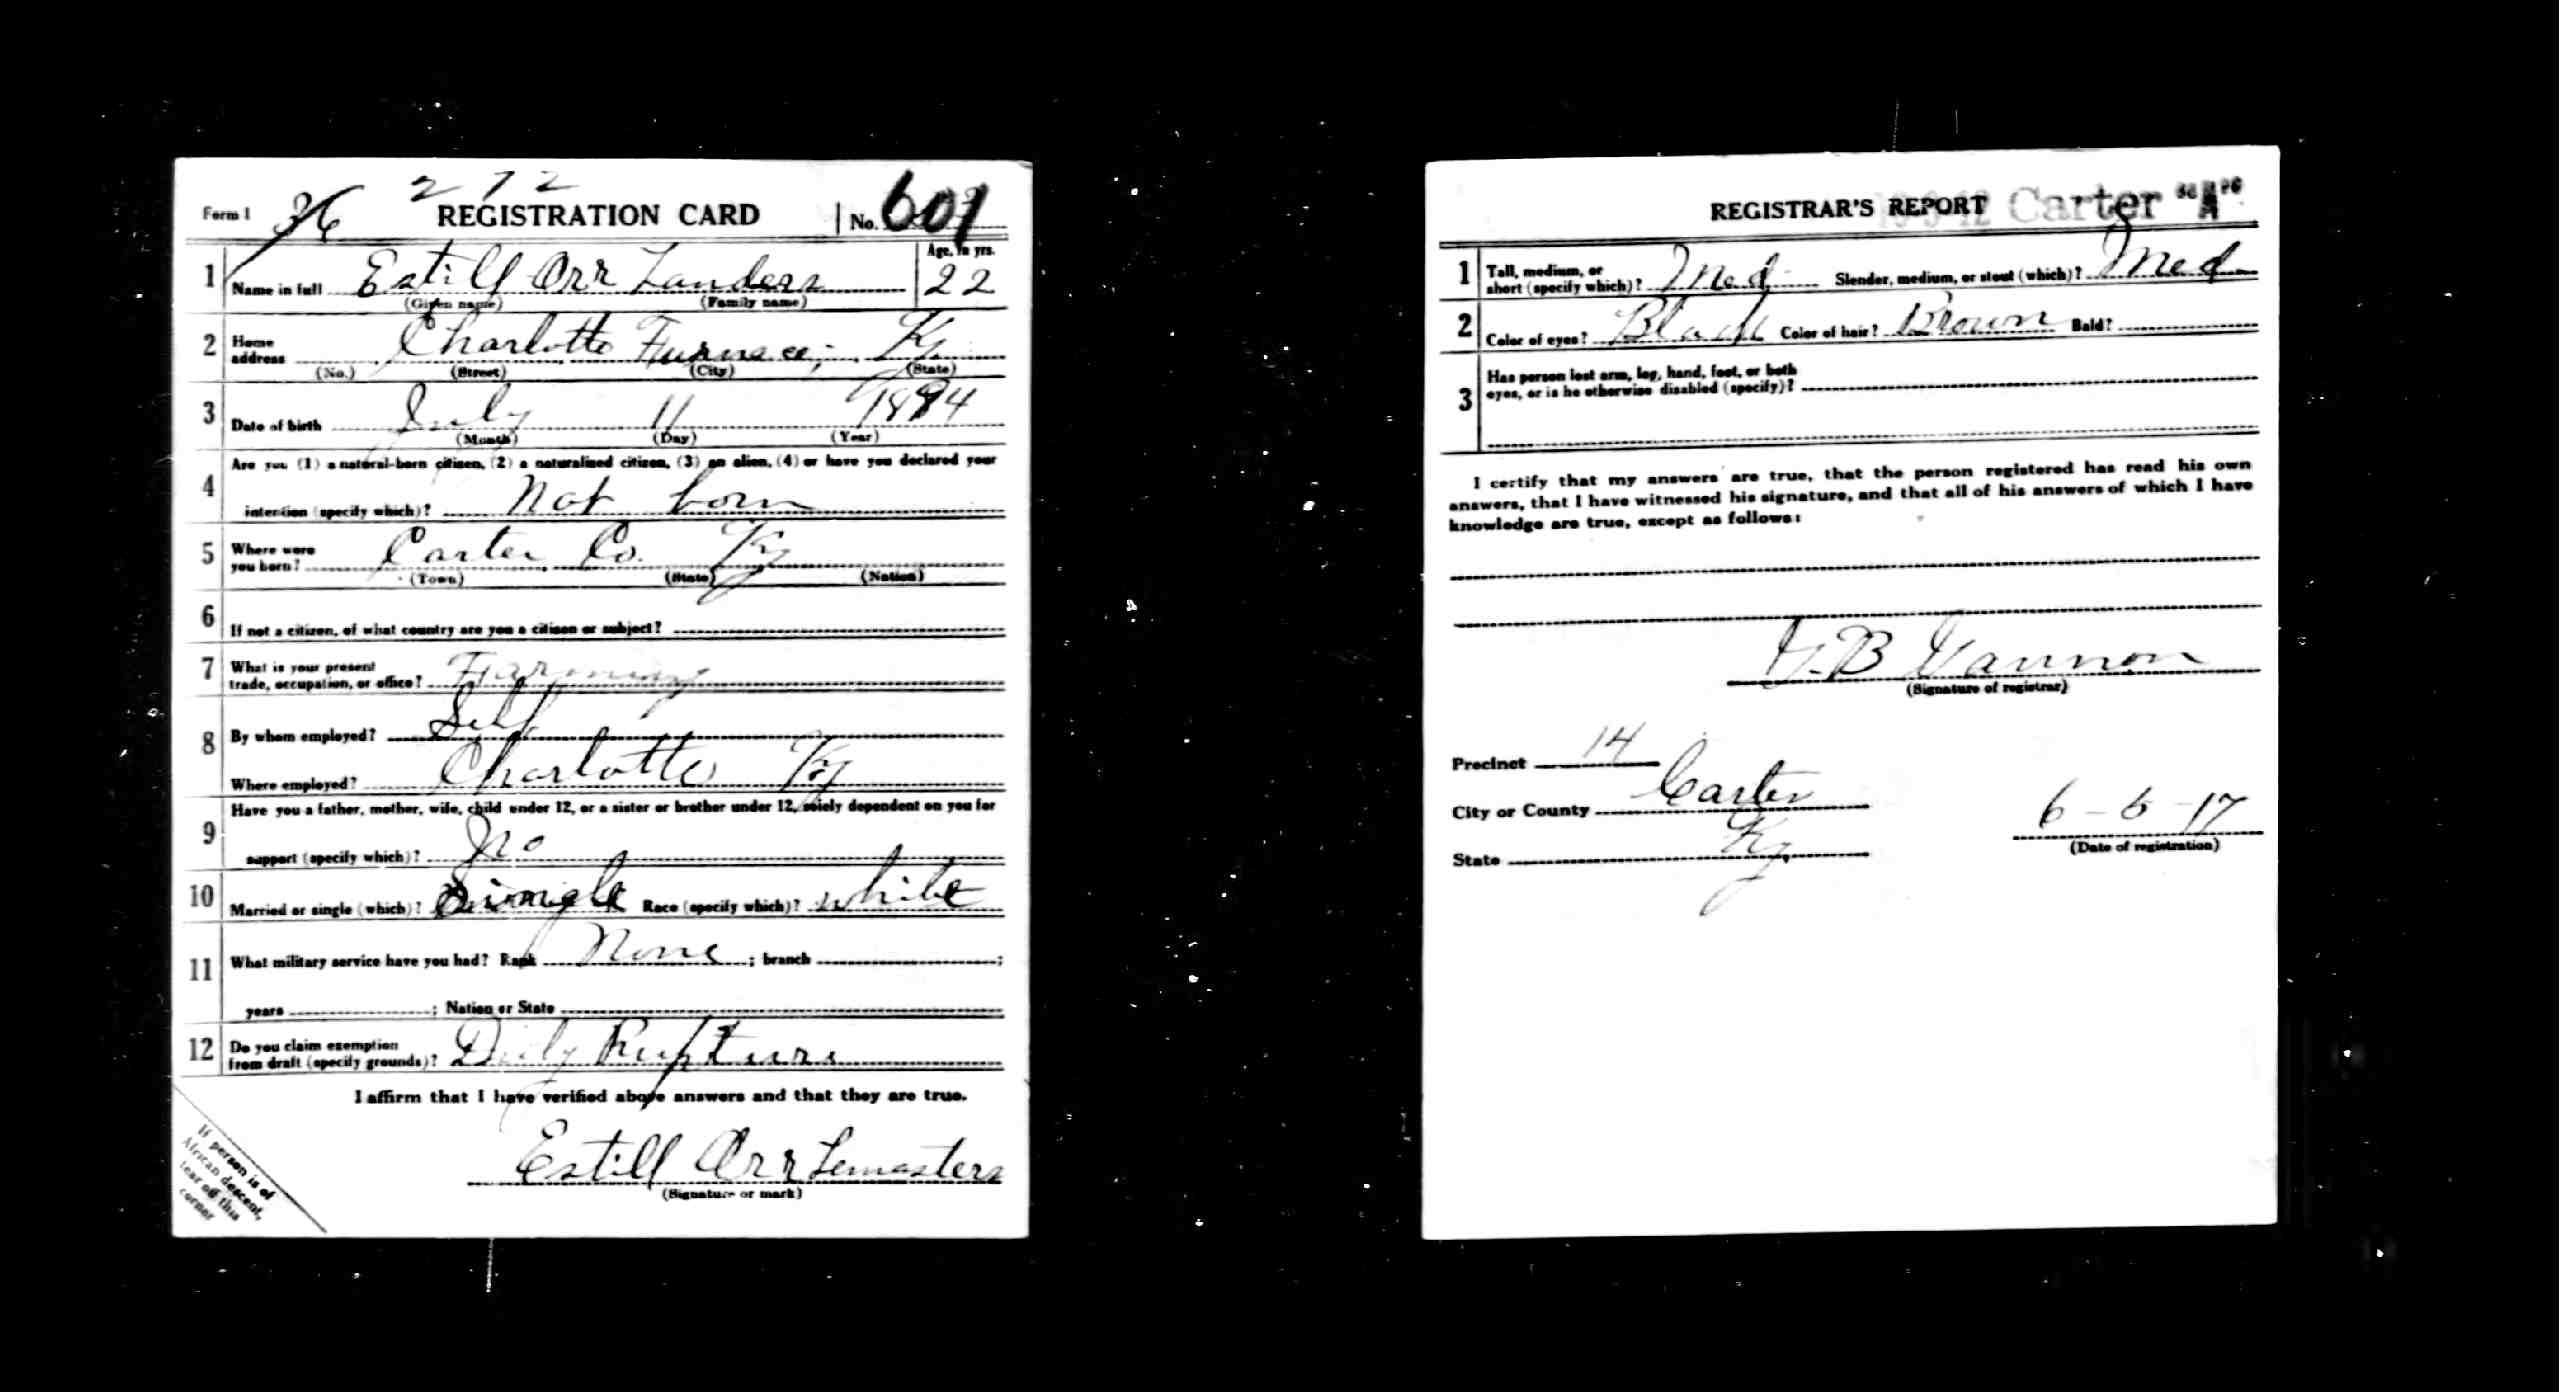 272
Form 1 36 REGISTRATION CARD No. 601
Age, in yrs.
1 Name in full Estill Orr Landers 22
(Given name) (Family name)
2 Home address Charlotte Furnace, Ky.
(No.) (Street) (City) (State)
3 Date of birth July 11 1894
(Month) (Day) (Year)
4 Are you (1) a natural-born citizen, (2) a naturalized citizen, (3) an alien, (4) or have you declared your
intention (specify which)? Nat born
5 Where were you born? Carter Co. Ky
(Town) (State) (Nation)
6 If not a citizen, of what country are you a citizen or subject?
7 What is your present trade, occupation, or office? Farming
8 By whom employed? Self
Where employed? Charlotte Ky
9 Have you a father, mother, wife, child under 12, or a sister or brother under 12, solely dependent on you for
support (specify which)? No
10 Married or single (which)? Single Race (specify which)? White
11 What military service have you had? Rank None ; branch ;
years ; Nation or State
12 Do you claim exemption from draft (specify grounds)? Rupture
I affirm that I have verified above answers and that they are true.
Estill Orr Lemasters
(Signature or mark)
If person is of
African descent,
tear off this
corner
REGISTRAR'S REPORT Carter "A"
1 Tall, medium, or short (specify which)? Med Slender, medium, or stout (which)? Med
2 Color of eyes? Black Color of hair? Brown Bald?
3 Has person lost arm, leg, hand, foot, or both
eyes, or is he otherwise disabled (specify)?
I certify that my answers are true, that the person registered has read his own
answers, that I have witnessed his signature, and that all of his answers of which I have
knowledge are true, except as follows:
B
(Signature of registrar)
Precinct 14
City or County Carter
State Ky.
6-5-17
(Date of registration)